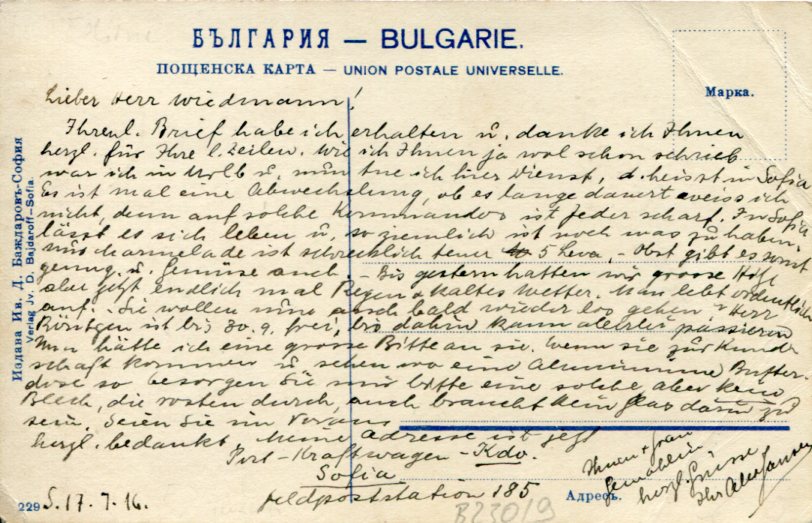 БЪЛГАРИЯ — BULGARIE.
ПОЩЕНСКА КАРТА — UNION POSTALE UNIVERSELLE.
Марка.
Lieber Herr Wiedmann!
Ihren l. Brief habe ich erhalten u. danke ich Ihnen
herzl. für Ihre l. Zeilen. Wie ich Ihnen ja wol schon schrieb
war ich in u. nun tue ich hier Dienst, d. heisst in Sofia
Es ist mal eine Abwechslung, ob es lange dauert weiss ich
nicht, denn auf solche Kommandos ist Jeder scharf. In Sofia
lässt es sich leben u. so ziemlich ist noch was zu haben,
nur Marmelade ist schrecklich teuer 5 Leva. - Obst gibt es sonst
genug u. Gemüse auch. Bis gestern hatten wir grosse
aber jetzt endlich mal Regen u kaltes Wetter. Man lebt ordentlich
auf. - Sie wollen nun auch bald wieder los gehen? Herr
Röntgen ist bis 30.9. frei, bis dahin kann allerlei passieren
Nun hätte ich eine grosse Bitte an sie. Wenn sie zur Kund-
schaft kommen u. sehen wo eine Aluminium Butter-
dose so besorgen Sie mir bitte eine solche aber kein
Blech, die rosten durch, auch braucht kein Glas darin zu
sein. Seien Sie im Voraus
herzl. bedankt. Meine Adresse ist jetzt
Pers.-Kraftwagen-Kdo.
Sofia
Feldpoststation 185
Ihnen + Frau
Gemahlin
herzl. Grüsse
Ihr
S. 17.7.16.
Адресъ.
229
B23019
Издава Ив. Д. Бажларовъ-София
Verlag Jv. D. Bajdaroff-Sofia.